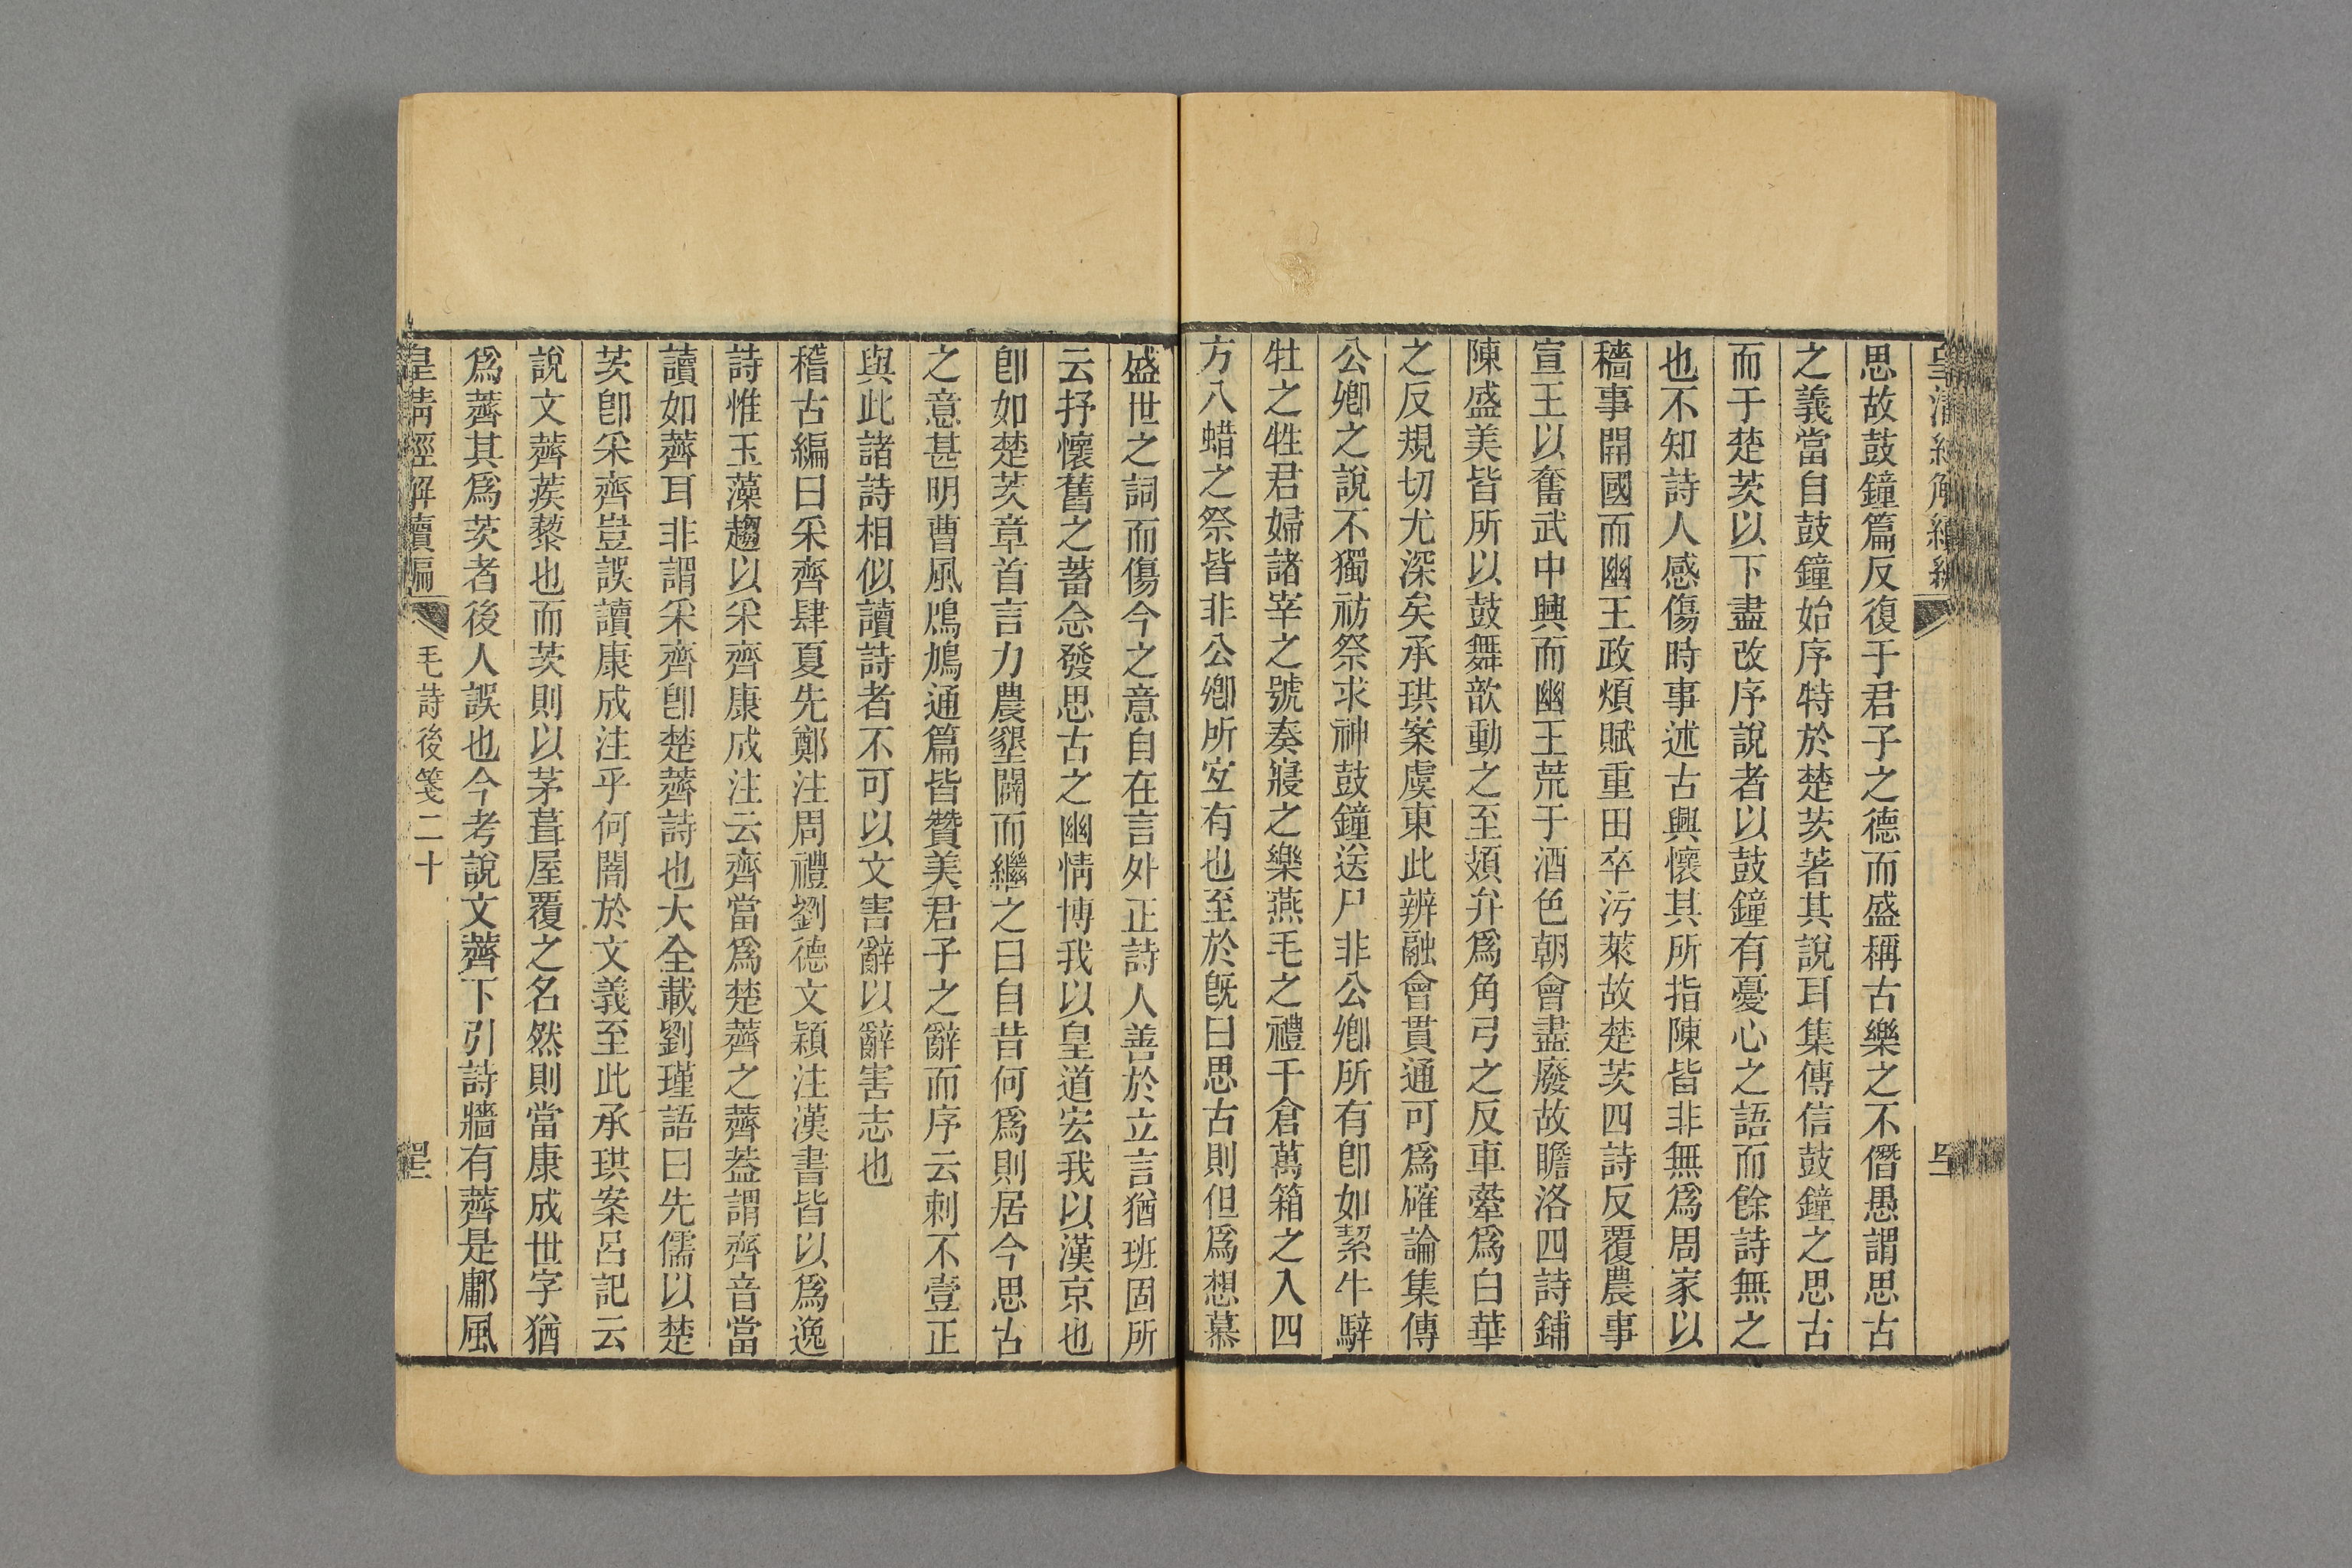 皇清經解續編
思故鼓鐘篇反復于君子之德而盛稱古樂之不僭愚謂思古
之義當自鼓鐘始序特於楚茨著其說耳集傳信鼓鐘之思古
而于楚茨以下盡改序說者以鼓鐘有憂心之語而餘詩無之
也不知詩人感傷時事述古興懷其所指陳皆非無爲周家以
穡事開國而幽王政煩賦重田卒污萊故楚茨四詩反覆農事
宣王以奮武中興而幽王荒于酒色朝會盡廢故瞻洛四詩鋪
陳盛美皆所以鼓舞歆動之至頍弁爲角弓之反車舝爲白華
之反規切尤深矣承珙案虞東此辨融會貫通可爲確論集傳
公卿之說不獨祊祭求神鼓鐘送尸非公卿所有卽如絜牛騂
牡之牲君婦諸宰之號奏寢之樂燕毛之禮千倉萬箱之入四
方八蜡之祭皆非公卿所宐有也至於旣曰思古則但爲想慕
盛世之詞而傷今之意自在言外正詩人善於立言猶班固所
云抒懷舊之蓄念發思古之幽情博我以皇道宏我以漢京也
卽如楚茨章首言力農墾闢而繼之曰自昔何爲則居今思古
之意甚明曹風鳲鳩通篇皆贊美君子之辭而序云刺不壹正
與此諸詩相似讀詩者不可以文害辭以辭害志也
稽古編曰采齊肆夏先鄭注周禮劉德文穎注漢書皆以爲逸
詩惟玉藻趨以采齊康成注云齊當爲楚薺之薺葢謂齊音當
讀如薺耳非謂采齊卽楚薺詩也大全載劉瑾語曰先儒以楚
茨卽采齊豈誤讀康成注乎何闇於文義至此承珙案呂記云
說文薺蒺藜也而茨則以茅葺屋覆之名然則當康成世字猶
爲薺其爲茨者後人誤也今考說文薺下引詩牆有薺是鄘風
皇清經解續編
毛詩後箋二十